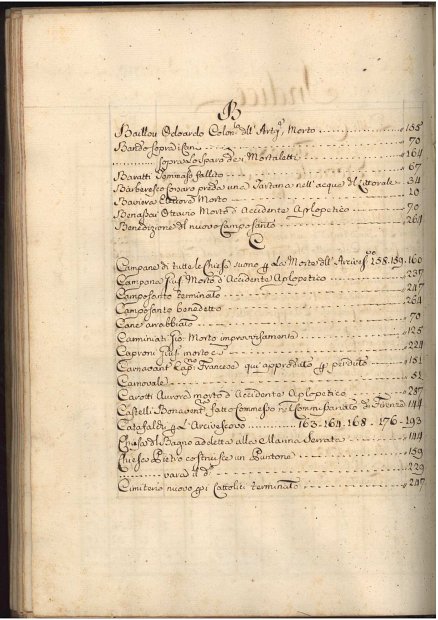 B
Baillou Odoardo Colon.la dell' Artig.a Morto 155
Bando sopra i Cani 70
sopra lo sparo de i Mortaletti 164
Baratti Tommaso fallito 67
Barbaresco Corsaro preda una Tartana nell' acque del Littorale 34
Baviera Elettore Morto 10
Benassai Ottavio Morto d'Accidente Aplopetico 70
Benedizione del nuovo Camposanto 264
C
Campane di tutte le Chiese suono p la Morte dell' Arcives.vo 158.159.160
Campana Morto d'Accidente Aplopetico 237
Camposanto terminato 247
Camposanto benedetto 264
Cane arrabbiato 70
Caminiati Gio: Morto improvvisamente 125
Caproni Gius. morto 224
Carnavant Cap.no Francese qui approdato p perduto 151
Carnovale 51
Carotti Aurora morto d'Accidente Aplopetico 287
Castelli Bonavent.a fatto Commesso nel Commissariato di Firenze 144
Catafalchi p l'Arcivescovo 163.164.168.176-193
Chiesa del Bagno addetta alle Manna Serrata 144
Chiesa Pietro costruisce un Puntone 159
vara il d.o 229
Cimiterio nuovo p i Cattolici terminato 247